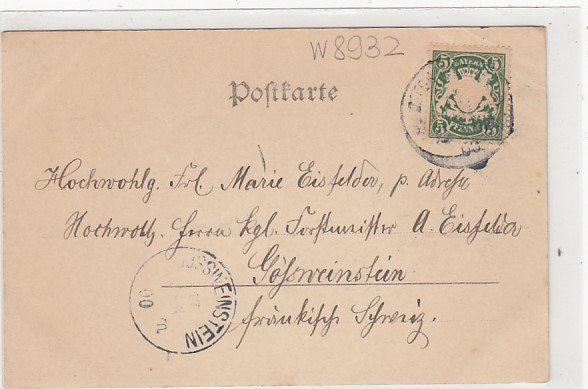 W 8932
5 BAYERN 5
5 PFENNIG 5
03
Postkarte
Hochwohlg. Frl. Marie Eisfelder, p. Adresse
Hochwohl. Herrn Kgl. Forstmeister A. Eisfelder
Gößweinstein
fränkische Schweiz.
SSWEINSTEIN
00